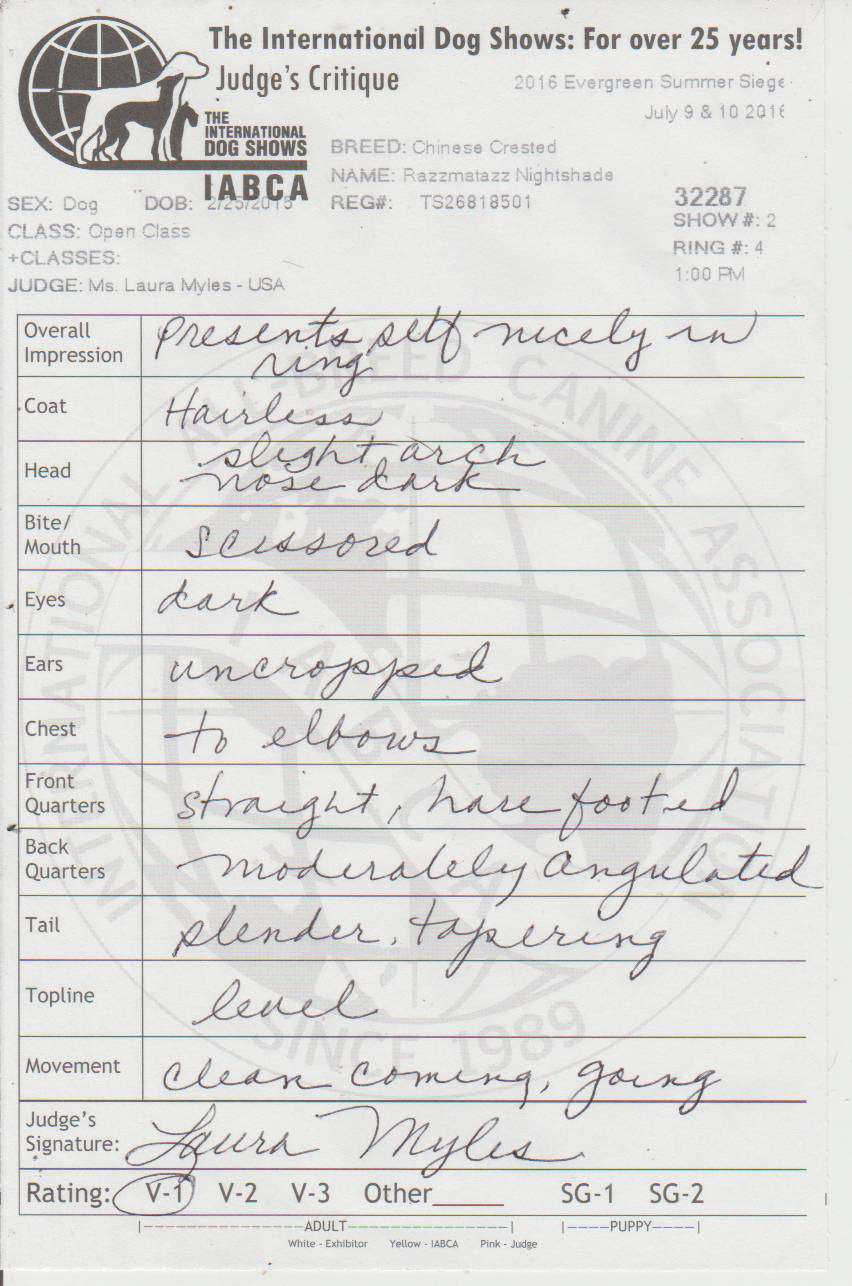 The International Dog Shows: For over 25 years!
Judge's Critique
2016 Evergreen Summer Siege
July 9 & 10 2016
THE
INTERNATIONAL
DOG SHOWS
IABCA
BREED: Chinese Crested
NAME: Razzmatazz Nightshade
SEX: Dog DOB: 2/25/2015 REG#: TS26818501
32287
SHOW #: 2
CLASS: Open Class
RING #: 4
+CLASSES:
1:00 PM
JUDGE: Ms. Laura Myles - USA
Overall
Impression
Presents self nicely in
ring
Coat Hairless
Head
slight arch
nose dark
Bite/
Mouth
scissored
Eyes dark
Ears uncropped
Chest to elbows
Front
Quarters
straight, hare footed
Back
Quarters
moderately angulated
Tail slender, tapering
Topline level
Movement clean coming, going
Judge's
Signature: Laura Myles
Rating: V-1 V-2 V-3 Other______ SG-1 SG-2
|----------------ADULT----------------| |-----PUPPY----|
White - Exhibitor Yellow - IABCA Pink - Judge
INTERNATIONAL ALL-BREED CANINE ASSOCIATION
IABCA
SINCE 1989